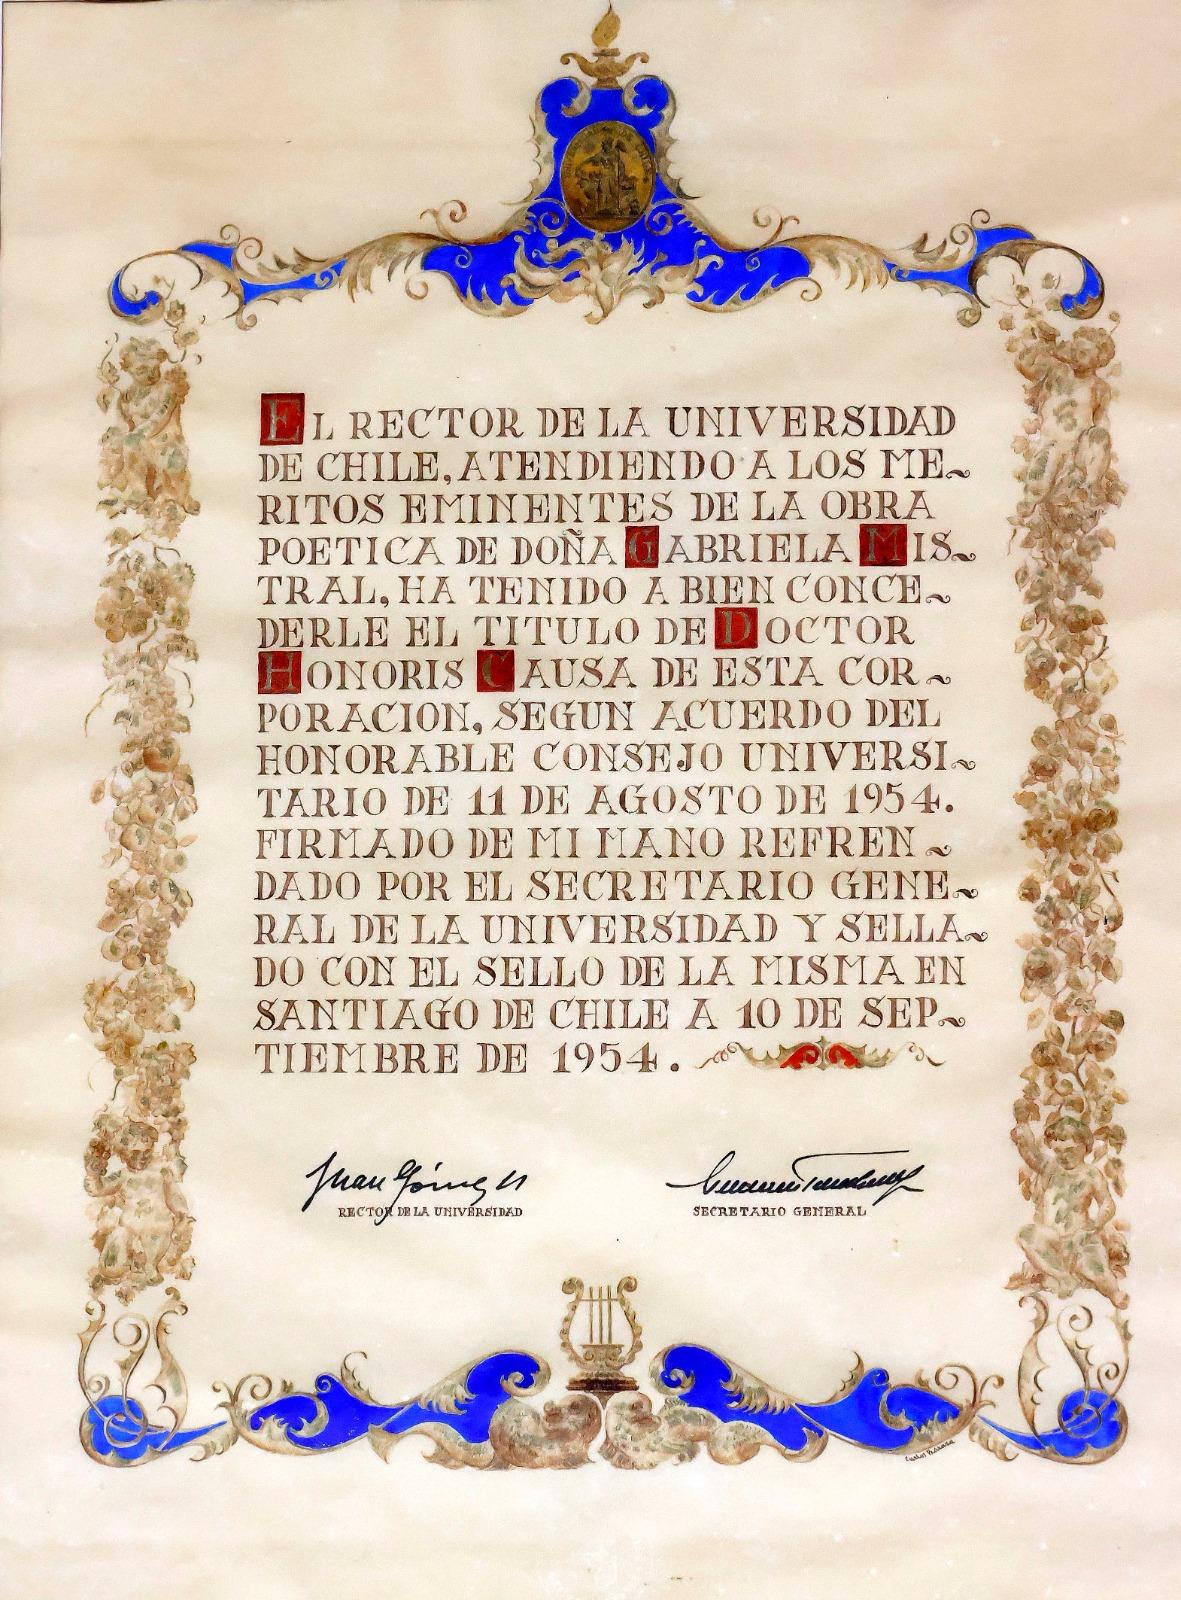 EL RECTOR DE LA UNIVERSIDAD
DE CHILE, ATENDIENDO A LOS ME~
RITOS EMINENTES DE LA OBRA
POETICA DE DOÑA GABRIELA MIS~
TRAL, HA TENIDO A BIEN CONCE~
DERLE EL TITULO DE DOCTOR
HONORIS CAUSA DE ESTA COR~
PORACION, SEGUN ACUERDO DEL
HONORABLE CONSEJO UNIVERSI~
TARIO DE 11 DE AGOSTO DE 1954.
FIRMADO DE MI MANO REFREN~
DADO POR EL SECRETARIO GENE~
RAL DE LA UNIVERSIDAD Y SELLA~
DO CON EL SELLO DE LA MISMA EN
SANTIAGO DE CHILE A 10 DE SEP~
TIEMBRE DE 1954.
Juan Gómez M
RECTOR DE LA UNIVERSIDAD
SECRETARIO GENERAL
Carlos